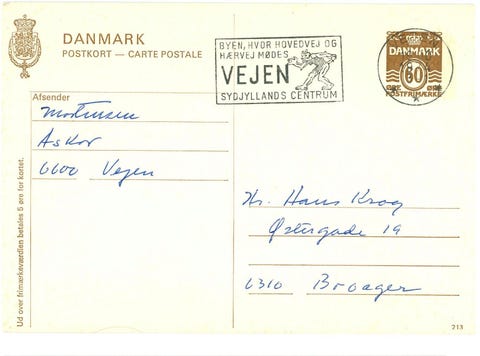 DANMARK
POSTKORT — CARTE POSTALE
BYEN, HVOR HOVEDVEJ OG
HÆRVEJ MØDES
VEJEN
SYDJYLLANDS CENTRUM
DANMARK
60
ØRE ØRE
POSTFRIMÆRKE
Afsender
Mortensen
Askov
6600 Vejen
Hr. Hans Krog
Østergade 19
6310 Broager
Ud over frimærkeværdien betales 5 øre for kortet.
213